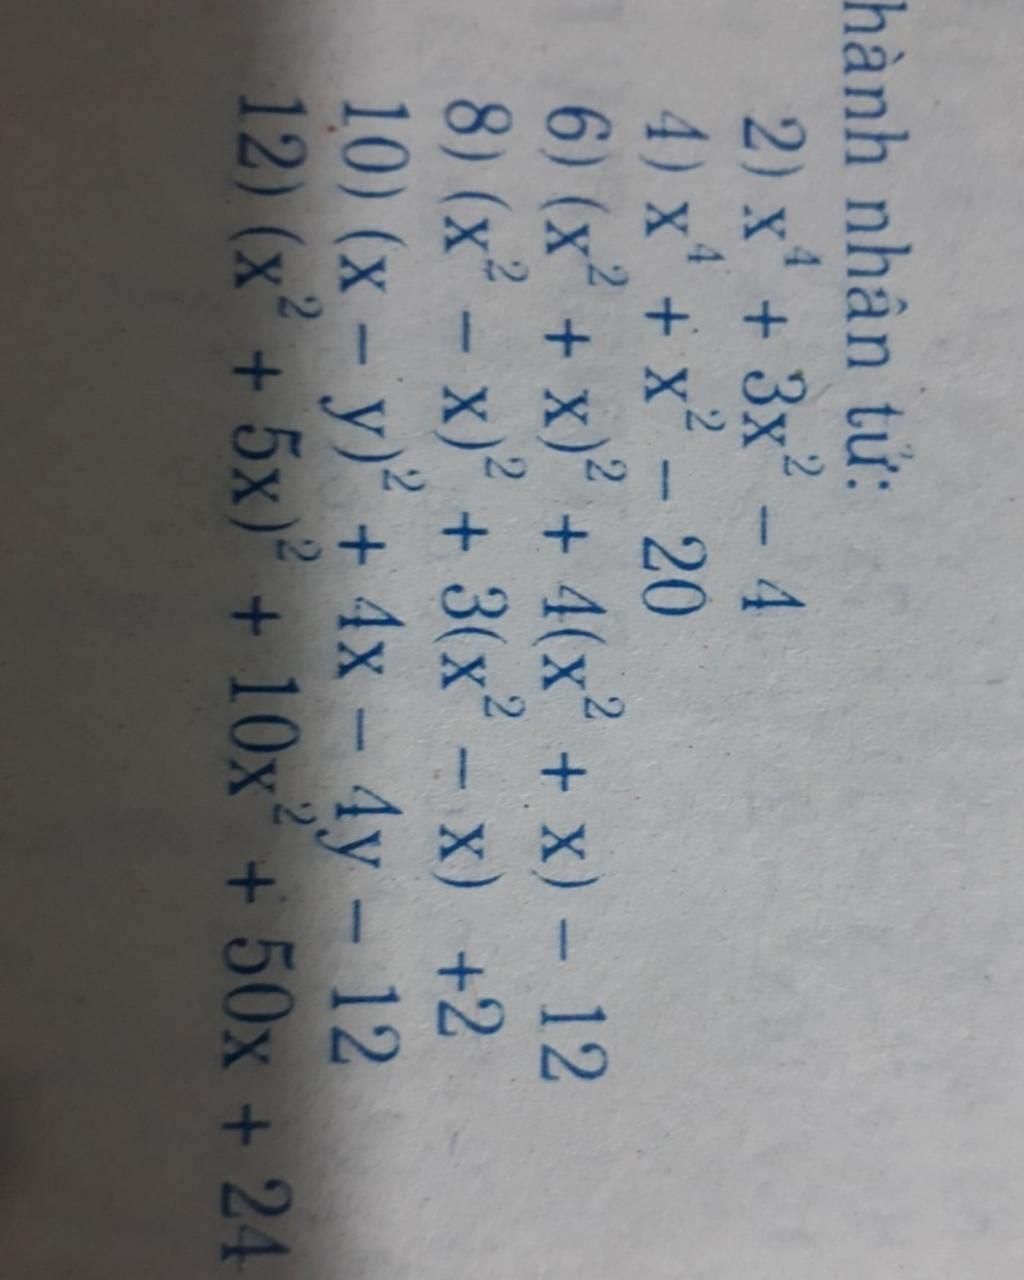 hành nhân tử:
2) x⁴ + 3x² - 4
4) x⁴ + x² - 20
6) (x² + x)² + 4(x² + x) - 12
8) (x² - x)² + 3(x² - x) +2
10) (x - y)² + 4x - 4y - 12
12) (x² + 5x)² + 10x² + 50x + 24